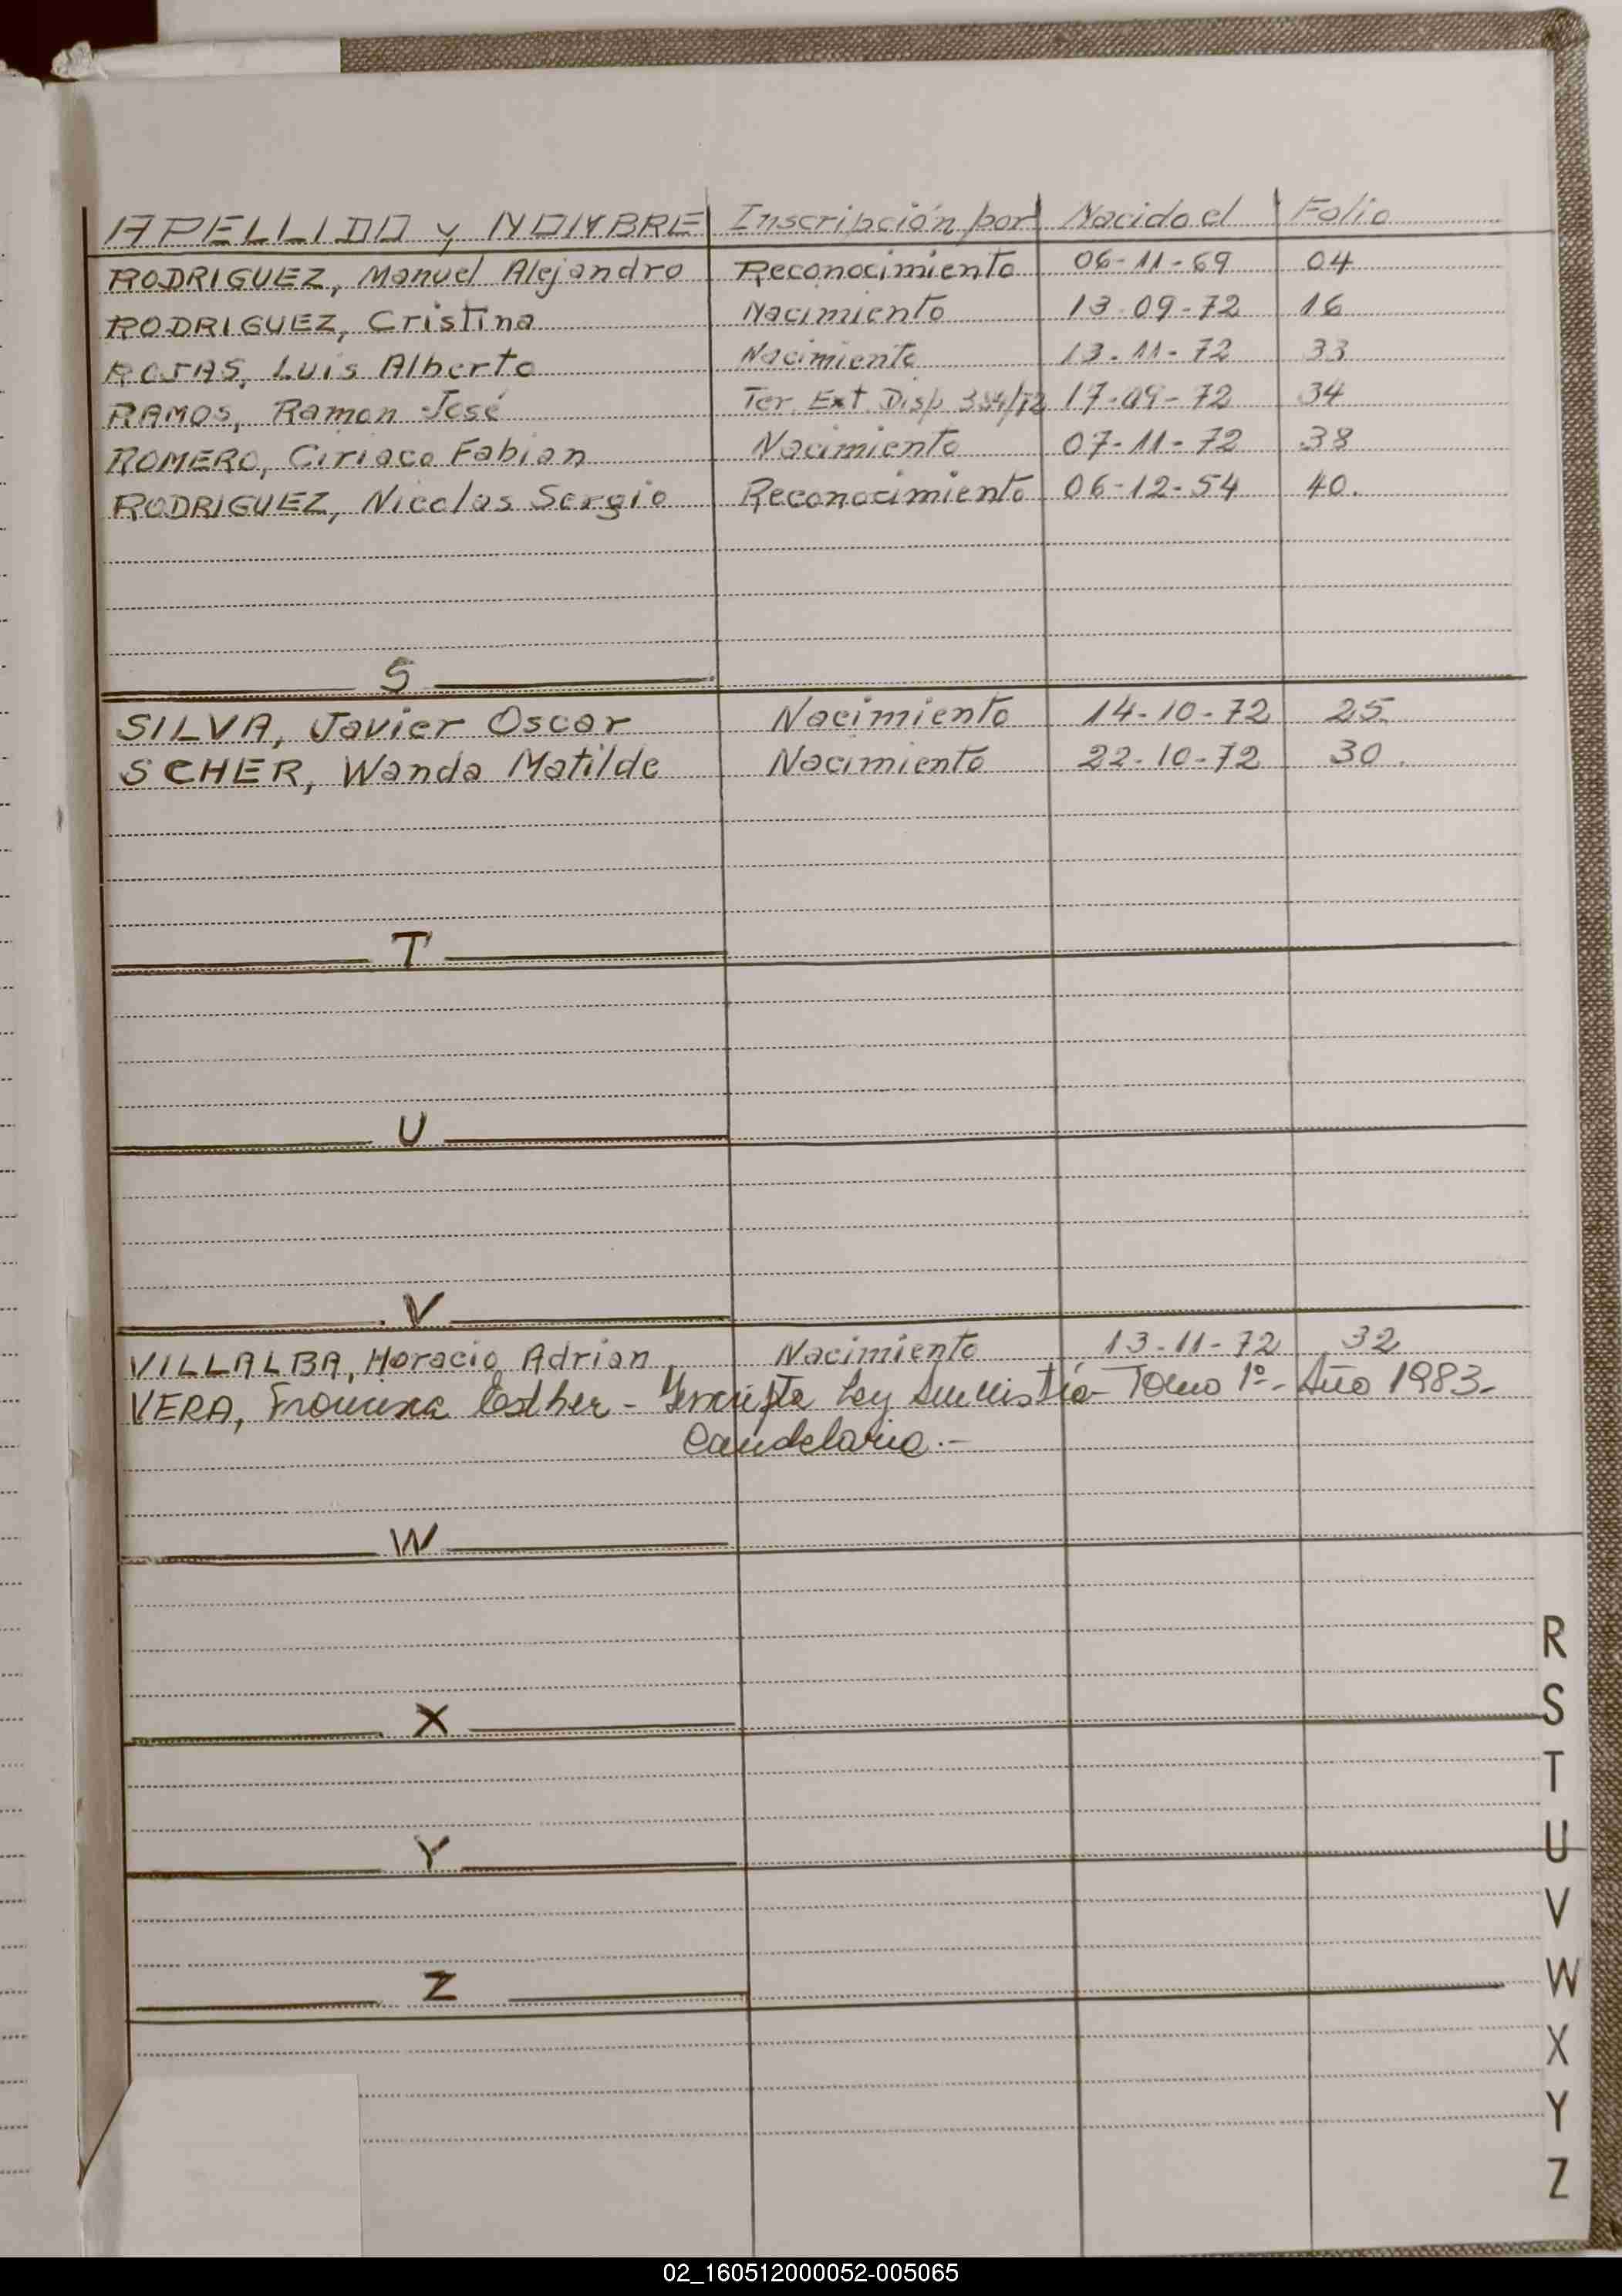 APELLIDO y NOMBRE Inscripción por Nacido el Folio
RODRIGUEZ, Manuel Alejandro Reconocimiento 06-11-69 04
RODRIGUEZ, Cristina Nacimiento 13-09-72 16
ROJAS, Luis Alberto Nacimiento 13-11-72 33
RAMOS, Ramon José Ter. Ext. Disp. 384/72 17-09-72 34
ROMERO, Ciriaco Fabian Nacimiento 07-11-72 38
RODRIGUEZ, Nicolas Sergio Reconocimiento 06-12-54 40.
S
SILVA, Javier Oscar Nacimiento 14-10-72 25
SCHER, Wanda Matilde Nacimiento 22-10-72 30
T
U
V
VILLALBA, Horacio Adrian Nacimiento 13-11-72 32
VERA, Esther - Ley Tomo 1º- Año 1983-
Candelaria.-
W
X
Y
Z
R
S
T
U
V
W
X
Y
Z
02_160512000052-005065